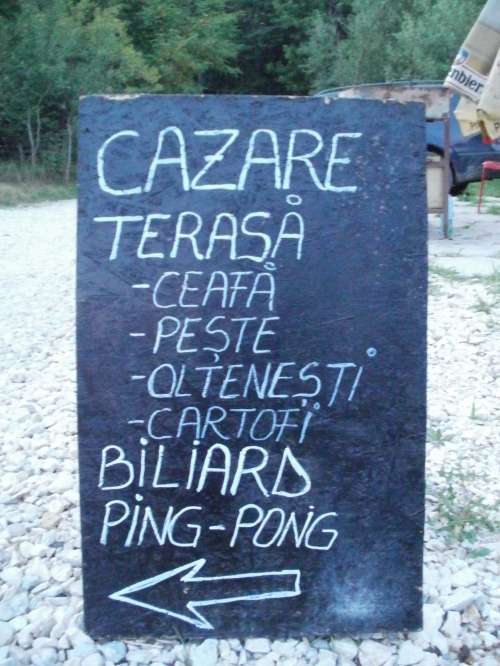 CAZARE
TERASĂ
-CEAFĂ
-PEȘTE
-OLTENEȘTI
-CARTOFI
BILIARD
PING-PONG